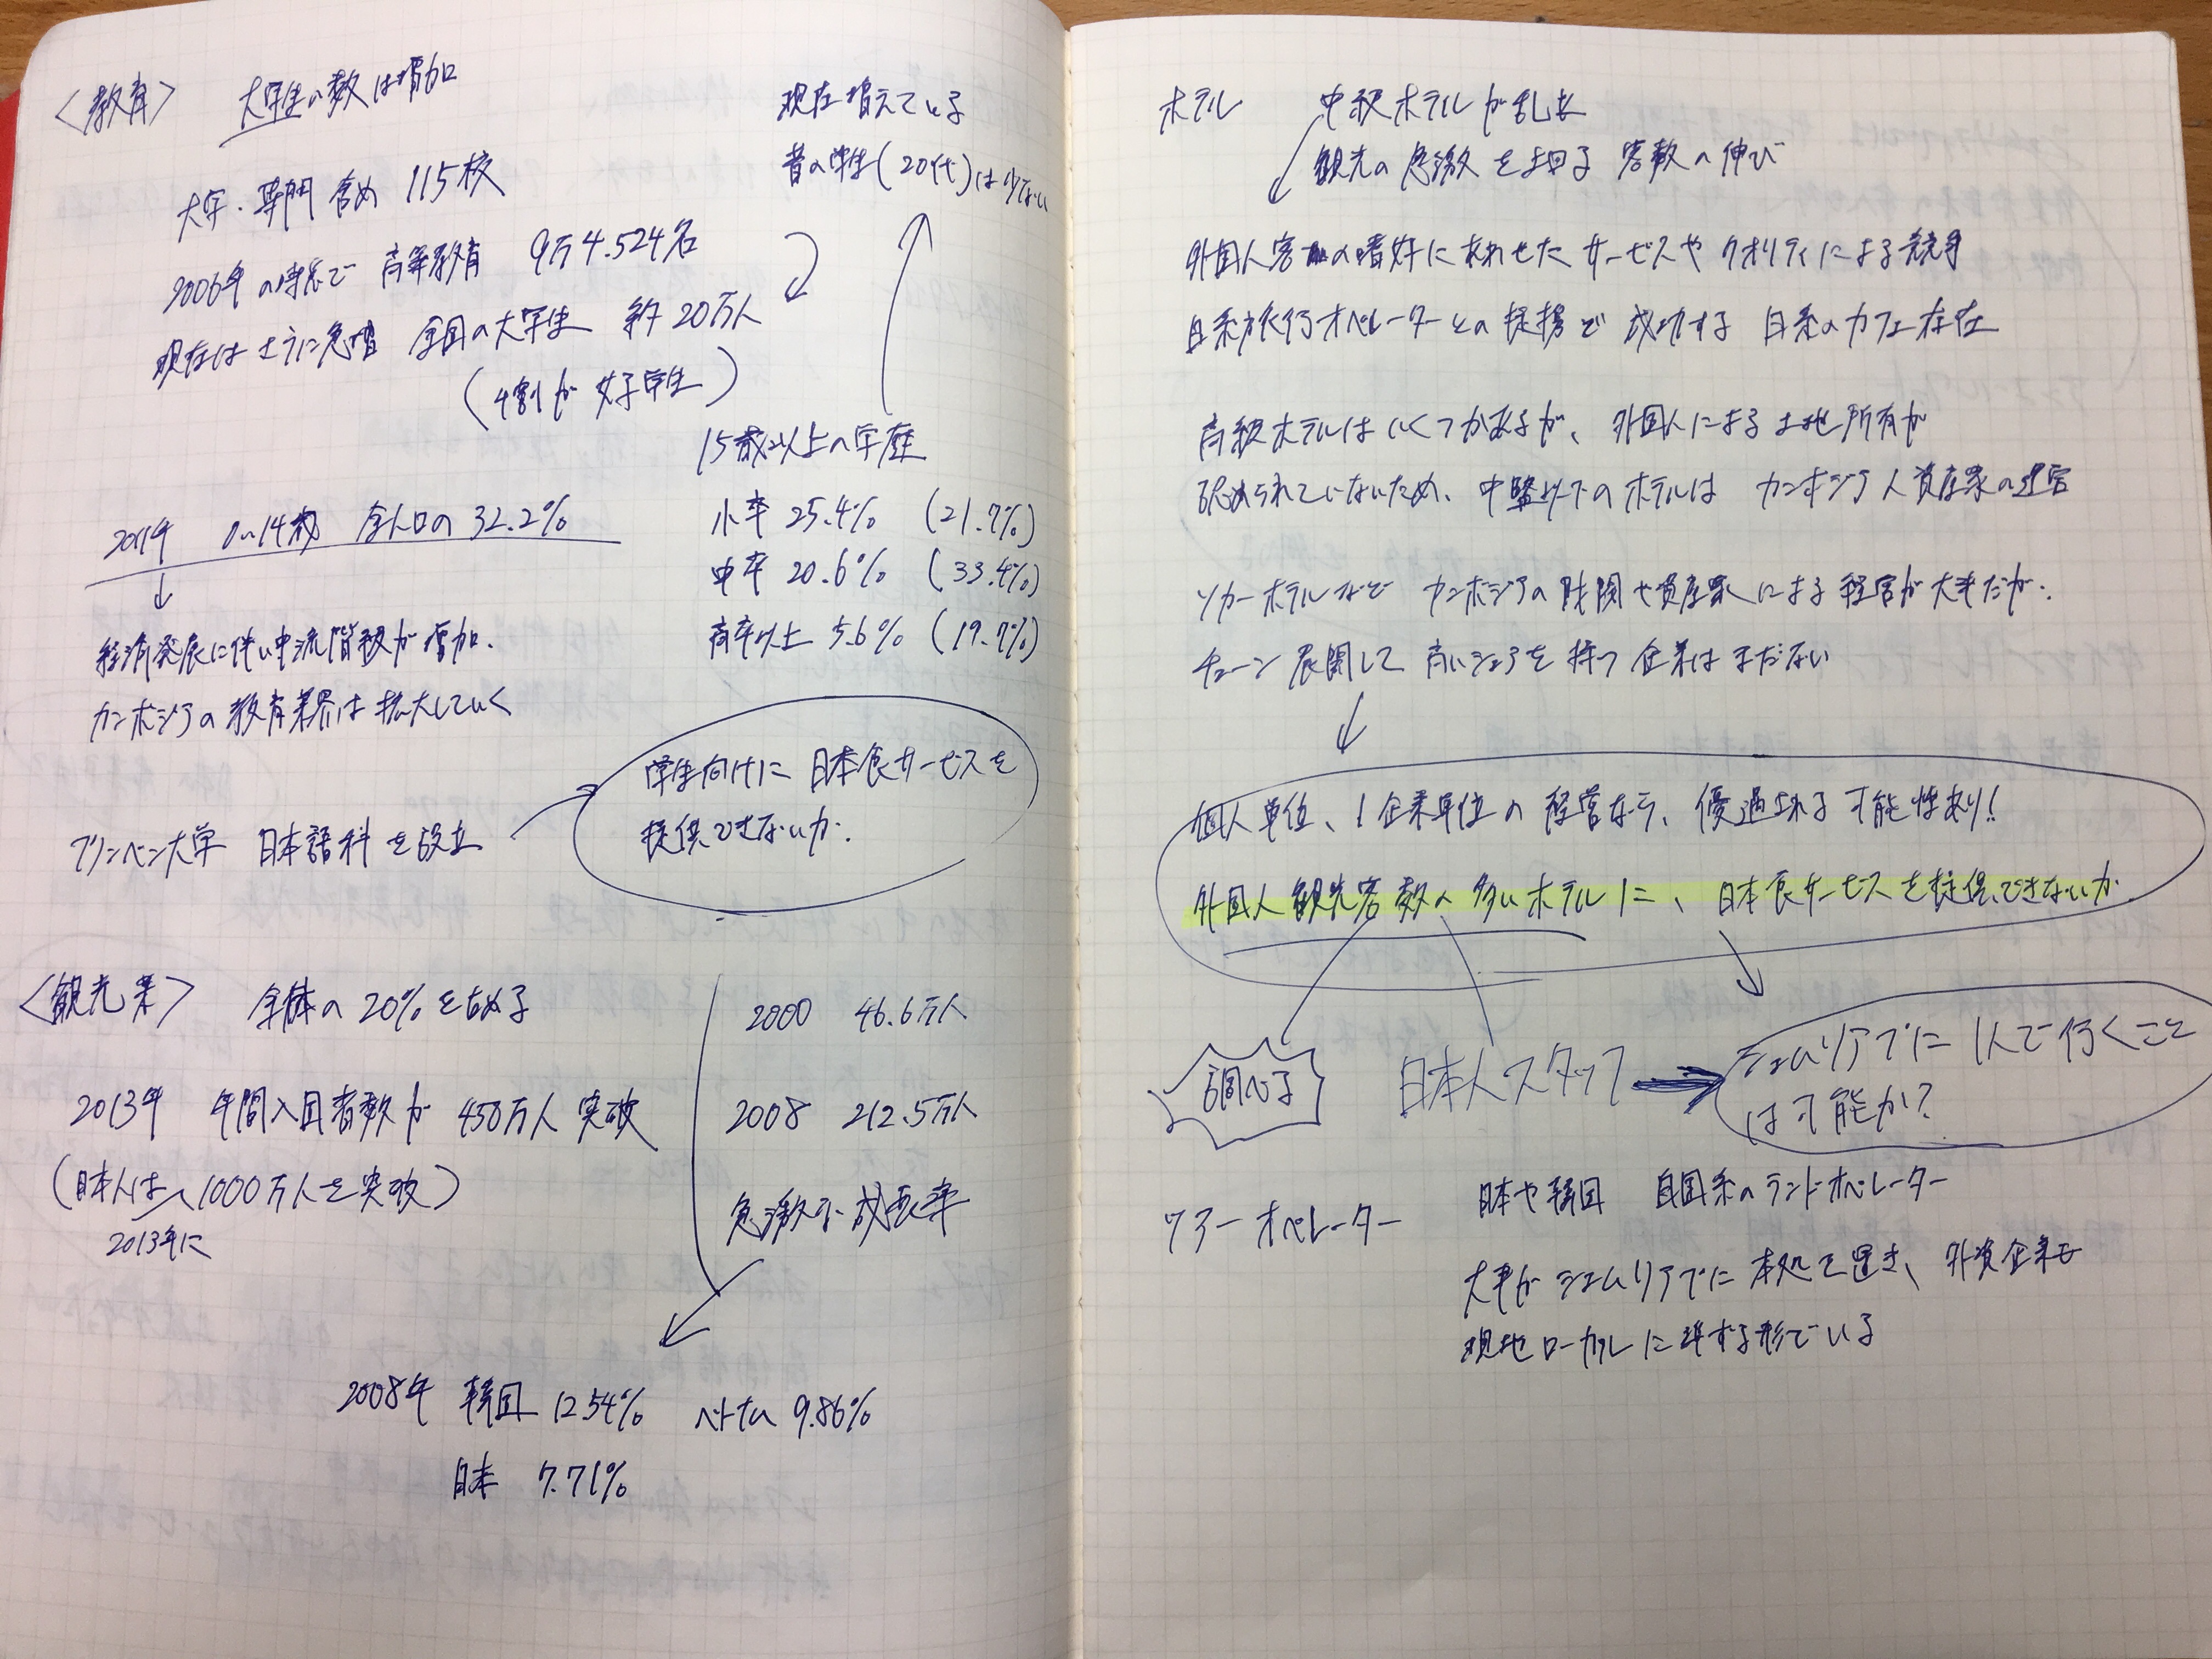 <教育> 大学生の数は増加
大学・専門 含め 115校
2006年の時点で 高等教育 9万4.524名
現在はさらに急増 全国の大学生 約20万人
(4割が 女子学生)
現在増えている
昔の学生(20代)は少ない
15歳以上の学歴
小卒 25.4% (21.7%)
中卒 20.6% (33.4%)
高卒以上 5.6% (19.7%)
0~14歳 全人口の 32.2%
経済発展に伴い中流階級が増加、
カンボジアの教育業界は拡大していく
プノンペン大学 日本語科を設立
学生向けに 日本食サービスを
提供できないか.
<観光業> 全体の 20%を占める
2013年 年間入国者数が 450万人 突破
(日本人は 1000万人を突破)
2013年に
2000 46.6万人
2008 212.5万人
急激な成長率
2008年 韓国 12.54% ベトナム 9.86%
日本 7.71%
ホテル 中級ホテルが乱立
観光の急激を上回る 客数の伸び
外国人客の嗜好にあわせたサービスや クオリティによる競争
日系旅行オペレーターとの提携で 成功する 日系のカフェ存在
高級ホテルはいくつかあるが、外国人による土地所有が
認められていないため、中堅以下のホテルは カンボジア人資産家の運営
ソカーホテルなど カンボジアの財閥や資産家による経営が大半だが、
チェーン展開して 高いシェアを持つ 企業はまだない
個人単位、1企業単位の経営なら、優遇される可能性あり!
外国人観光客数の多いホテルに、日本食サービスを提供できないか
調べる
日本人スタッフ
シェムリアプに 1人で行くこと
は可能か?
ツアーオペレーター 日本や韓国 自国系のランドオペレーター
大半がシェムリアプに本処を置き、外資企業も
現地ローカルに準ずる形でいる